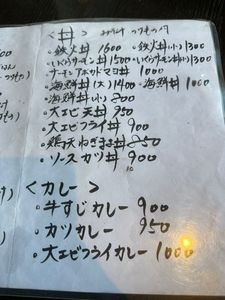 <丼> みそ汁 つけもの付
・鉄火丼 1600 ・鉄火丼(小) 1300
・いくらサーモン丼 1500 ・いくらサーモン丼(小) 1300
・サーモンアボカドマヨ丼 1000
・海鮮丼(大) 1400 ・海鮮丼 1000
・海鮮丼(小) 800
・大エビ天丼 950
・大エビフライ丼 900
・鶏天ねぎま丼 850
・ソースカツ丼 900
<カレー>
・牛すじカレー 900
・カツカレー 950
・大エビフライカレー 1000